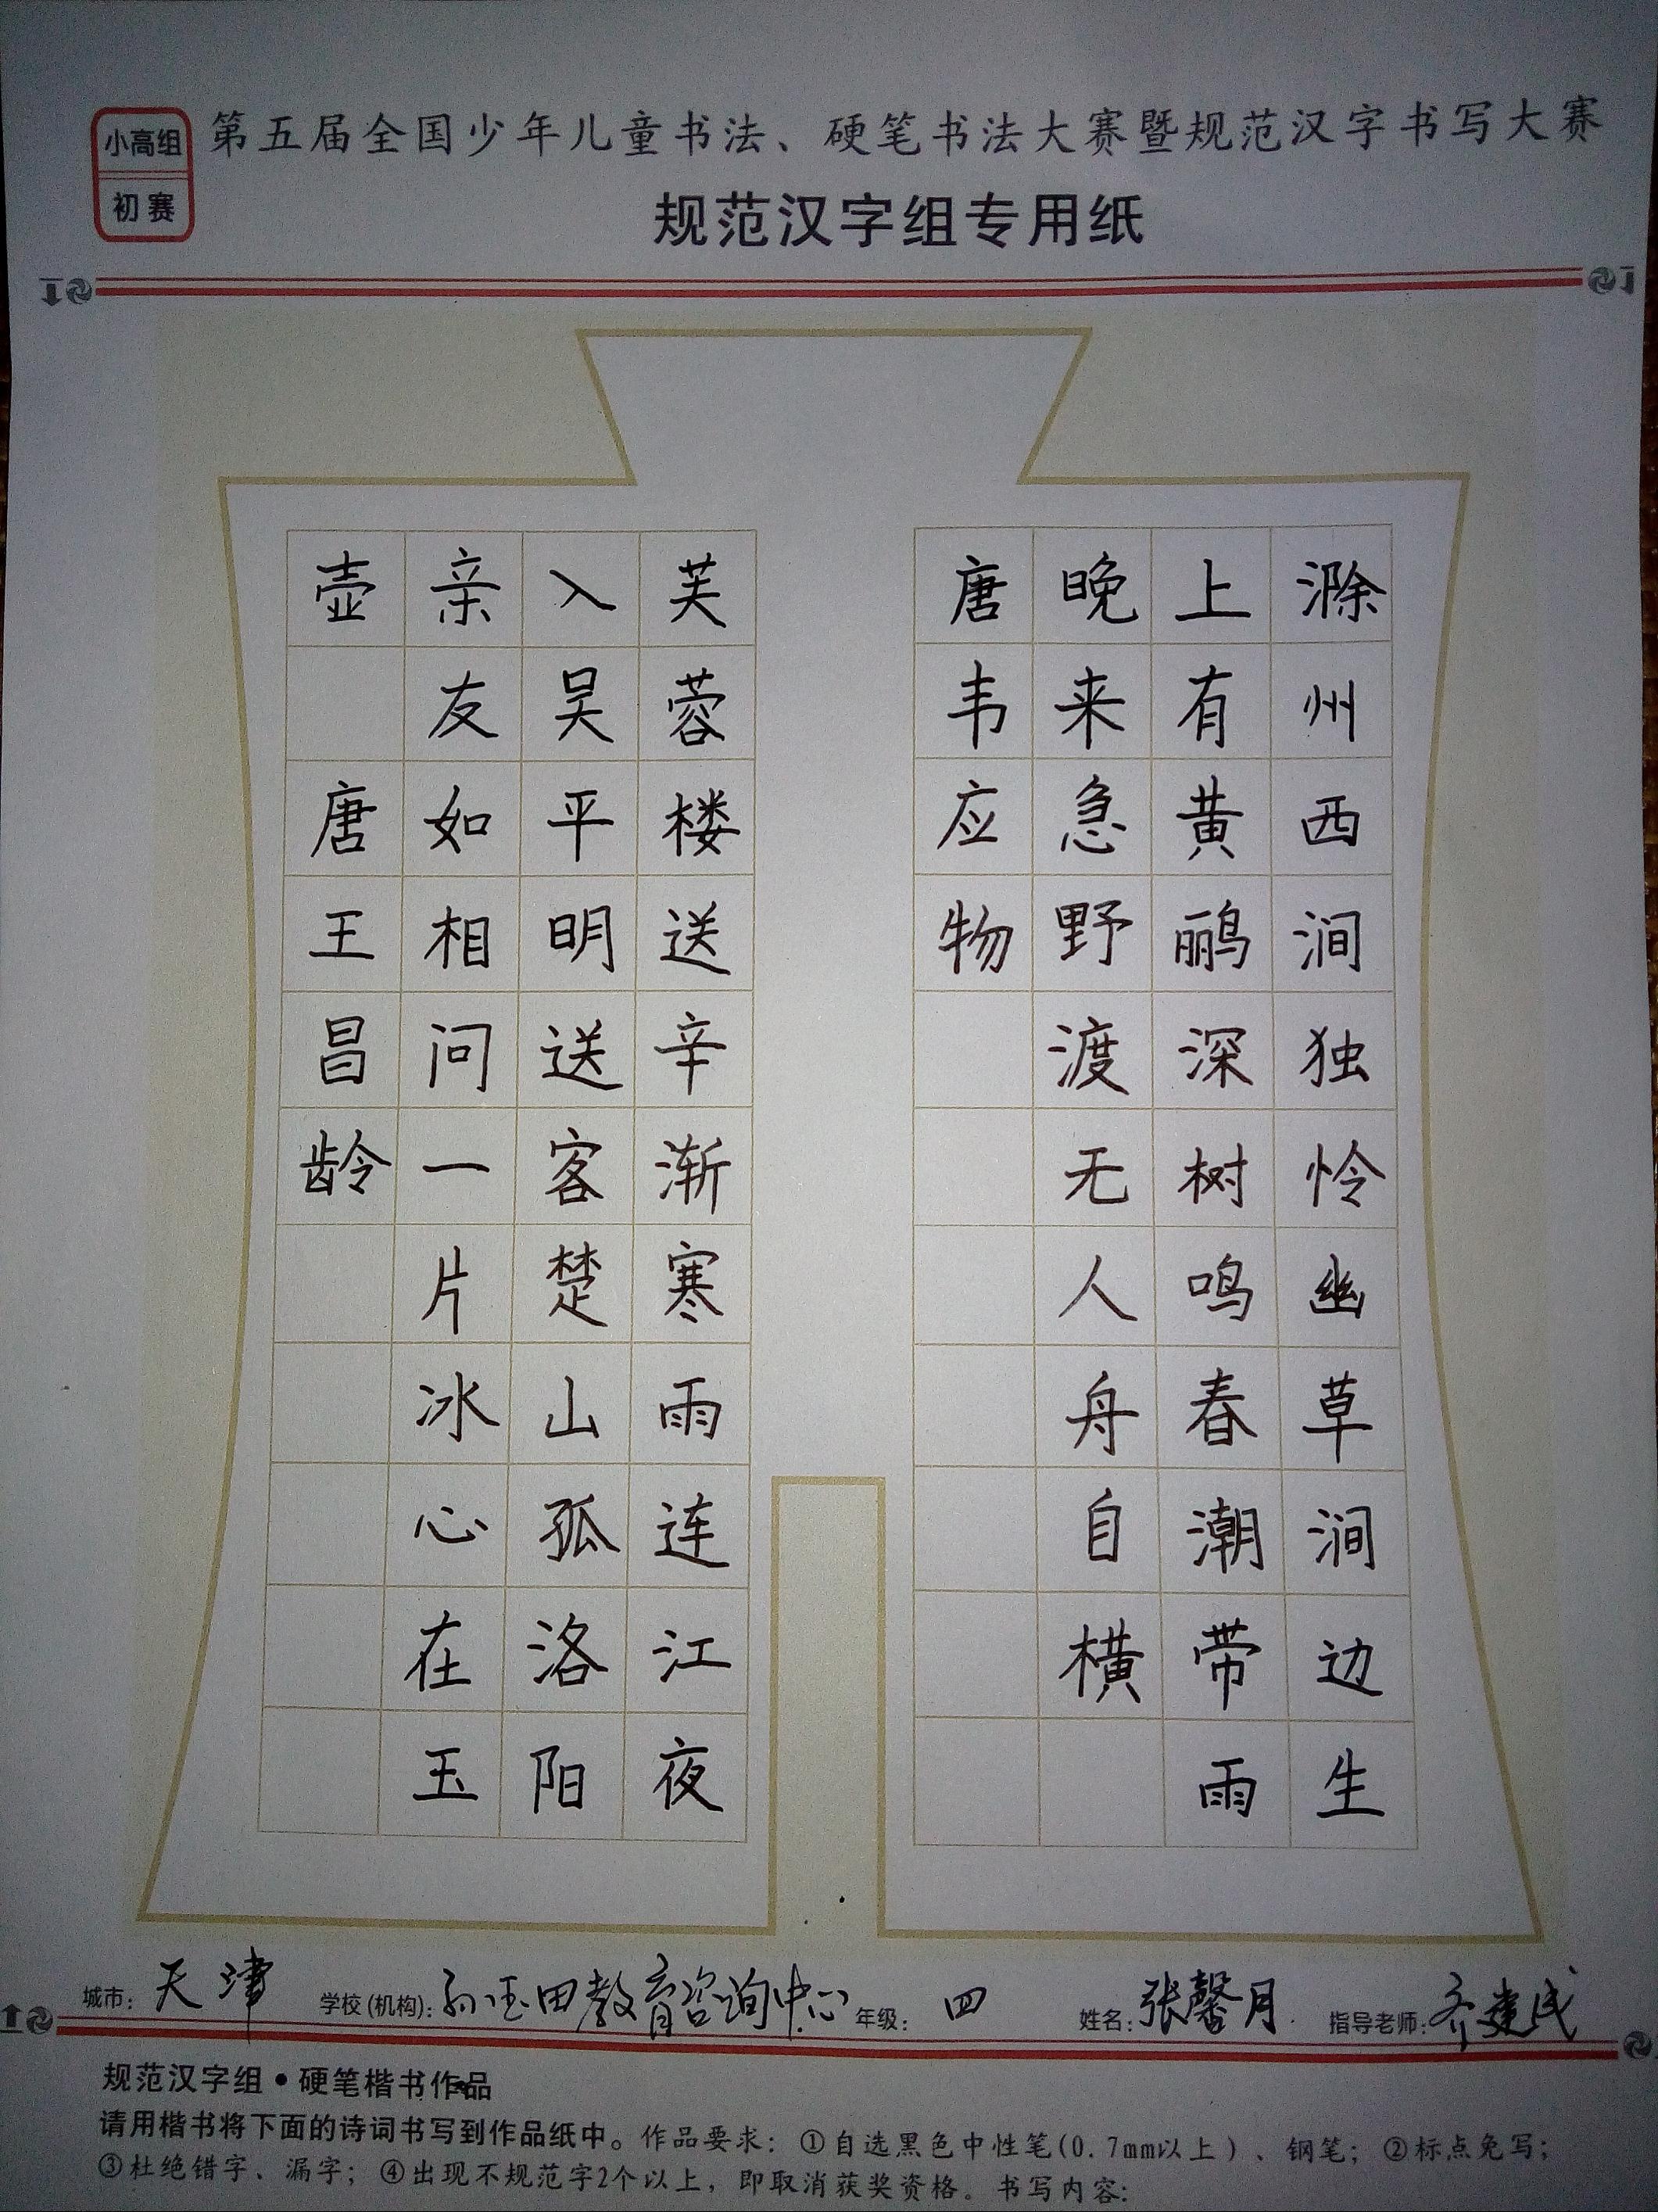 小高组
初赛
第五届全国少年儿童书法、硬笔书法大赛暨规范汉字书写大赛
规范汉字组专用纸
滁州西涧独怜幽草涧边生
上有黄鹂深树鸣春潮带雨
晚来急野渡无人舟自横
唐韦应物
芙蓉楼送辛渐寒雨连江夜
入吴平明送客楚山孤洛阳
亲友如相问一片冰心在玉
壶 唐王昌龄
城市：天津 学校(机构)：孙玉田教育咨询中心 年级：四 姓名：张馨月 指导老师：
规范汉字组•硬笔楷书作品
请用楷书将下面的诗词书写到作品纸中。作品要求：①自选黑色中性笔(0.7mm以上)、钢笔；②标点免写；
③杜绝错字、漏字；④出现不规范字2个以上，即取消获奖资格。书写内容：